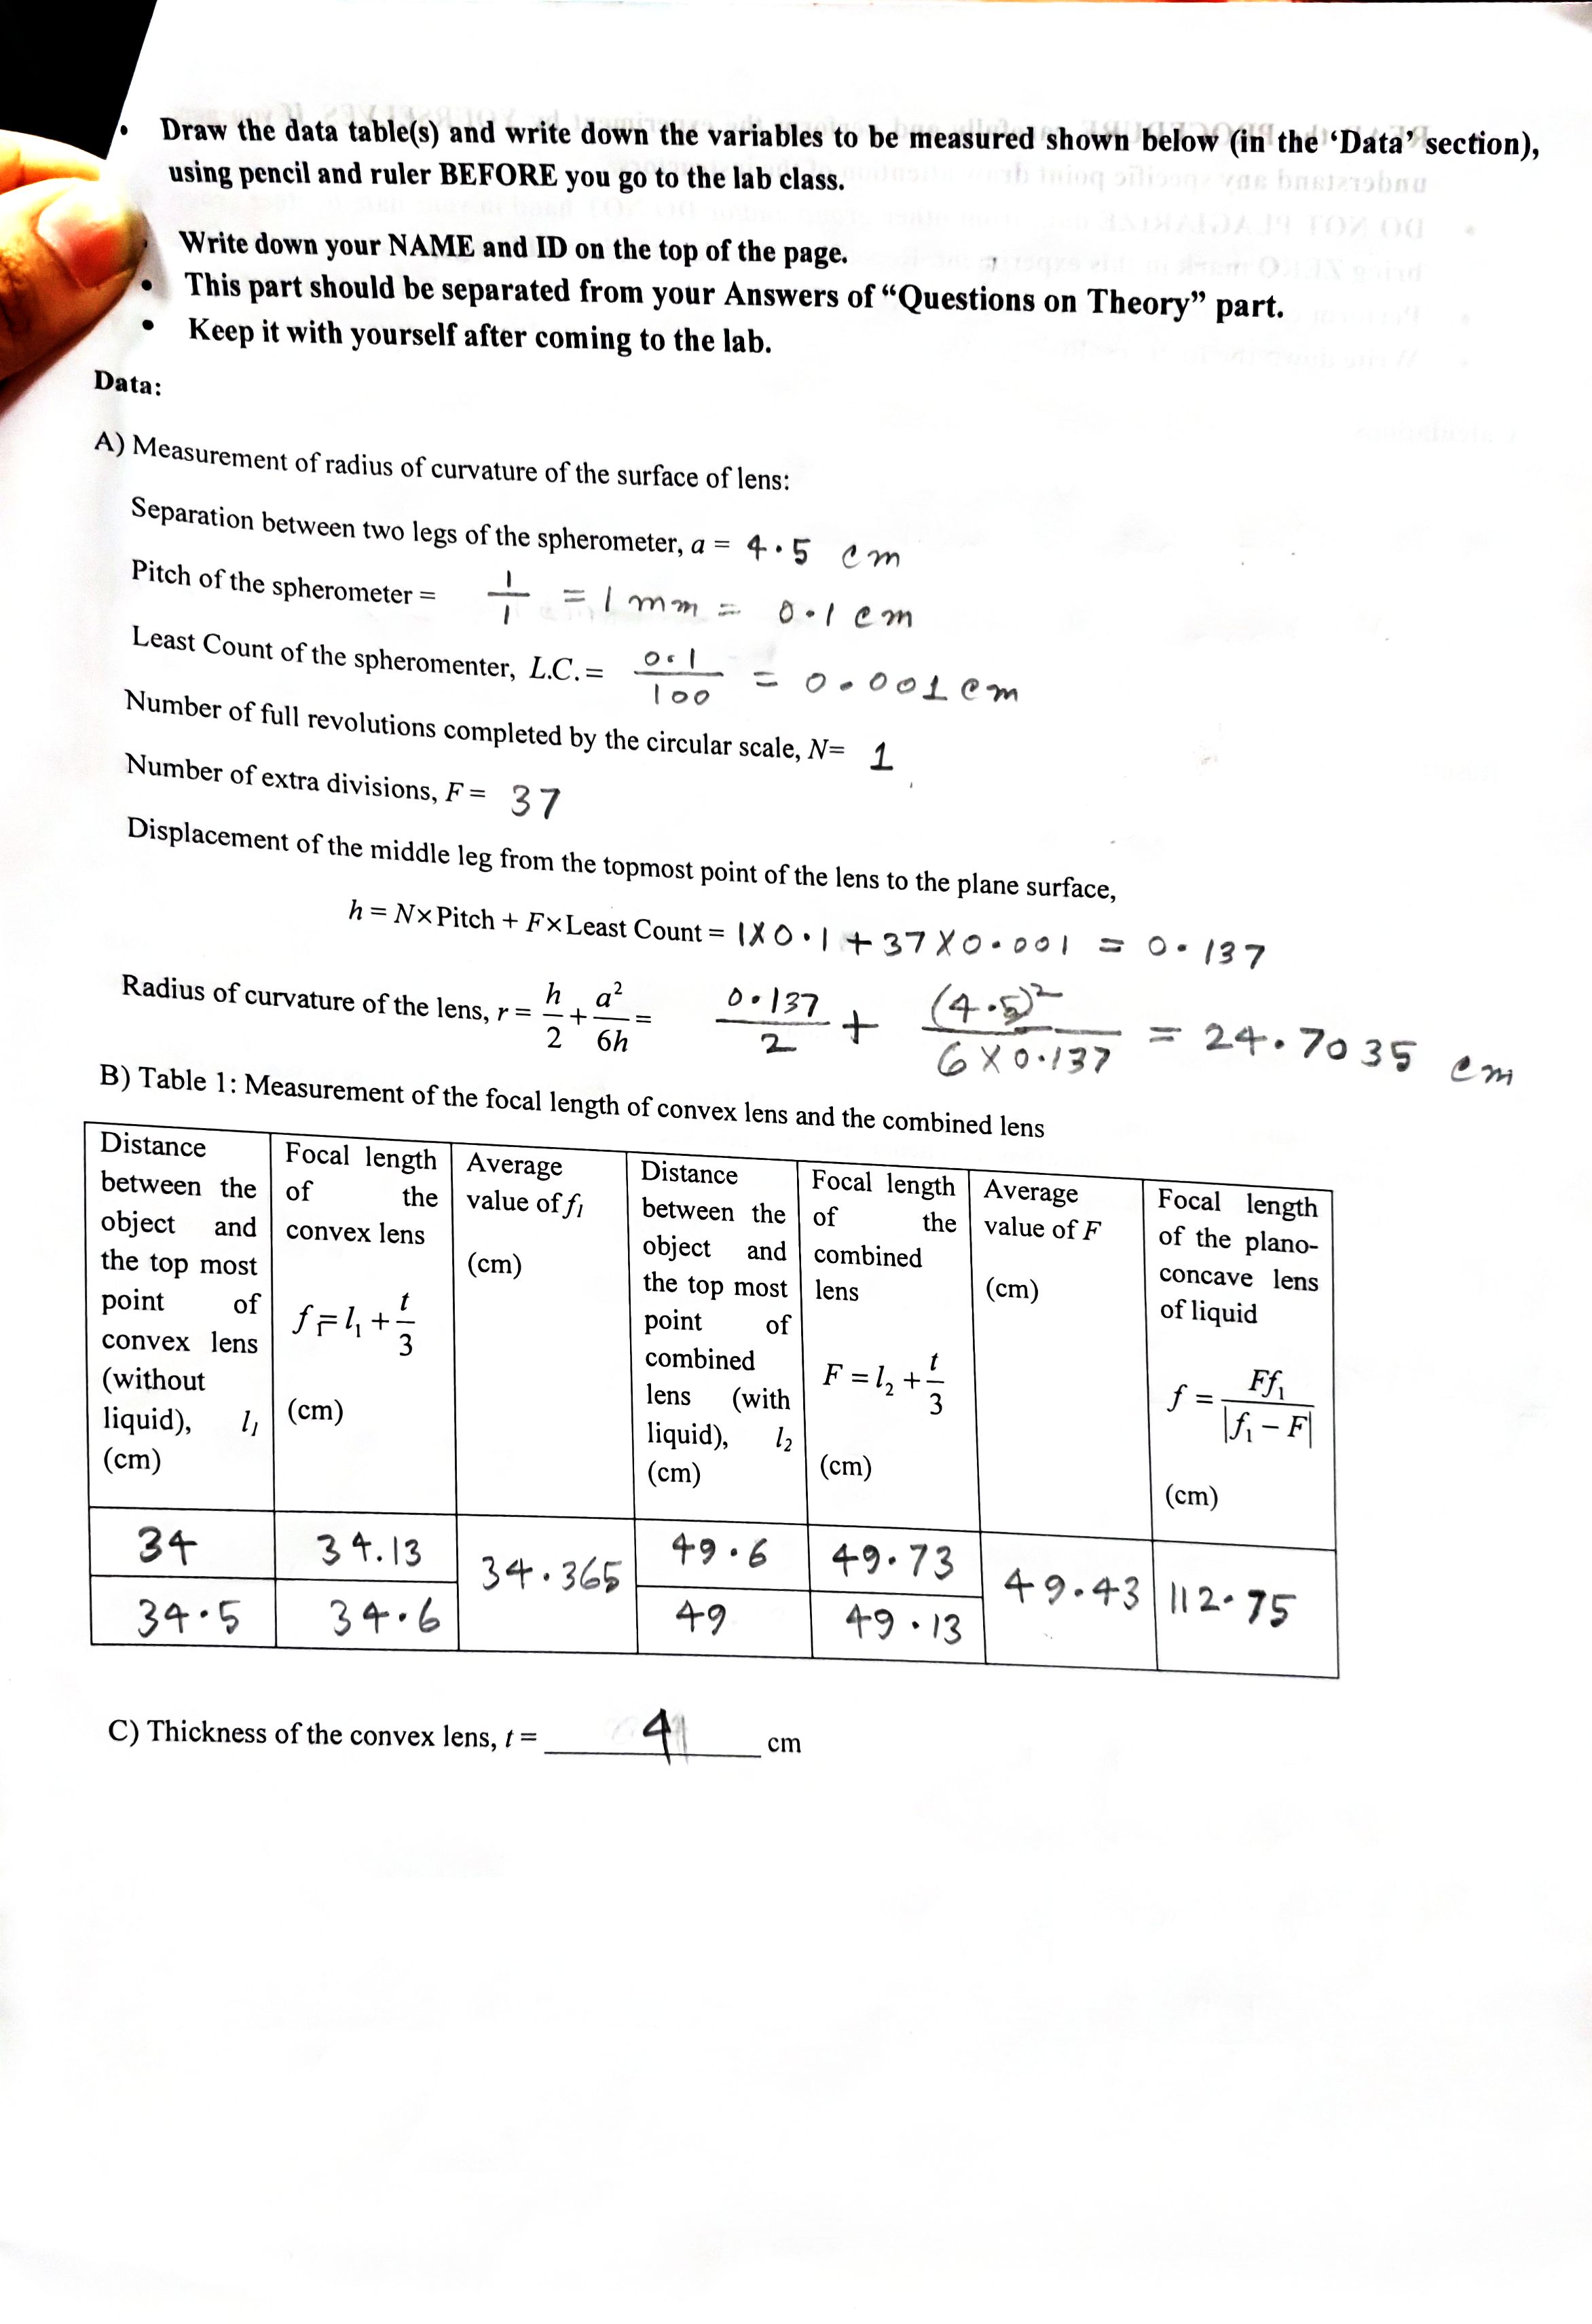 • Draw the data table(s) and write down the variables to be measured shown below (in the ‘Data’ section),
using pencil and ruler BEFORE you go to the lab class.
Write down your NAME and ID on the top of the page.
• This part should be separated from your Answers of “Questions on Theory” part.
• Keep it with yourself after coming to the lab.
Data:
A) Measurement of radius of curvature of the surface of lens:
Separation between two legs of the spherometer, a = 4.5 cm
Pitch of the spherometer = 1/1 = 1 mm = 0.1 cm
Least Count of the spheromenter, L.C. = 0.1/100 = 0.001 cm
Number of full revolutions completed by the circular scale, N= 1
Number of extra divisions, F = 37
Displacement of the middle leg from the topmost point of the lens to the plane surface,
h = N×Pitch + F×Least Count = 1×0.1 + 37×0.001 = 0.137
Radius of curvature of the lens, r = h/2 + a²/6h = 0.137/2 + (4.5)²/6×0.137 = 24.7035 cm
B) Table 1: Measurement of the focal length of convex lens and the combined lens
Distance
between the
object and
the top most
point of
convex lens
(without
liquid), l₁
(cm)
Focal length
of the
convex lens
f₁=l₁+t/3
(cm)
Average
value of f₁
(cm)
Distance
between the
object and
the top most
point of
combined
lens (with
liquid), l₂
(cm)
Focal length
of the
combined
lens
F=l₂+t/3
(cm)
Average
value of F
(cm)
Focal length
of the plano-
concave lens
of liquid
f = Ff₁/|f₁ − F|
(cm)
34 34.13 34.365 49.6 49.73 49.43 112.75
34.5 34.6 49 49.13
C) Thickness of the convex lens, t = 4 cm